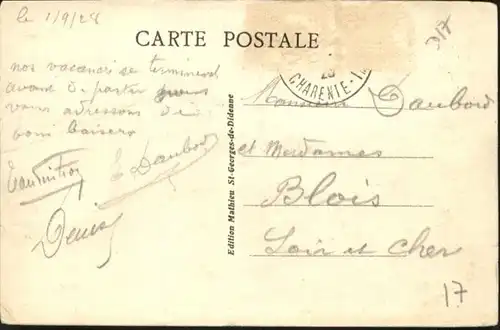 le 1/9/28
CARTE POSTALE
317
nos vacances se terminent
avant de partir nous
vous adressons de
bons baisers
E Daubord
Denis
Edition Mathieu St-Georges-de-Didonne
28
CHARENTE-I
Monsieur Daubord
et Mesdames
Blois
Loir et Cher
17